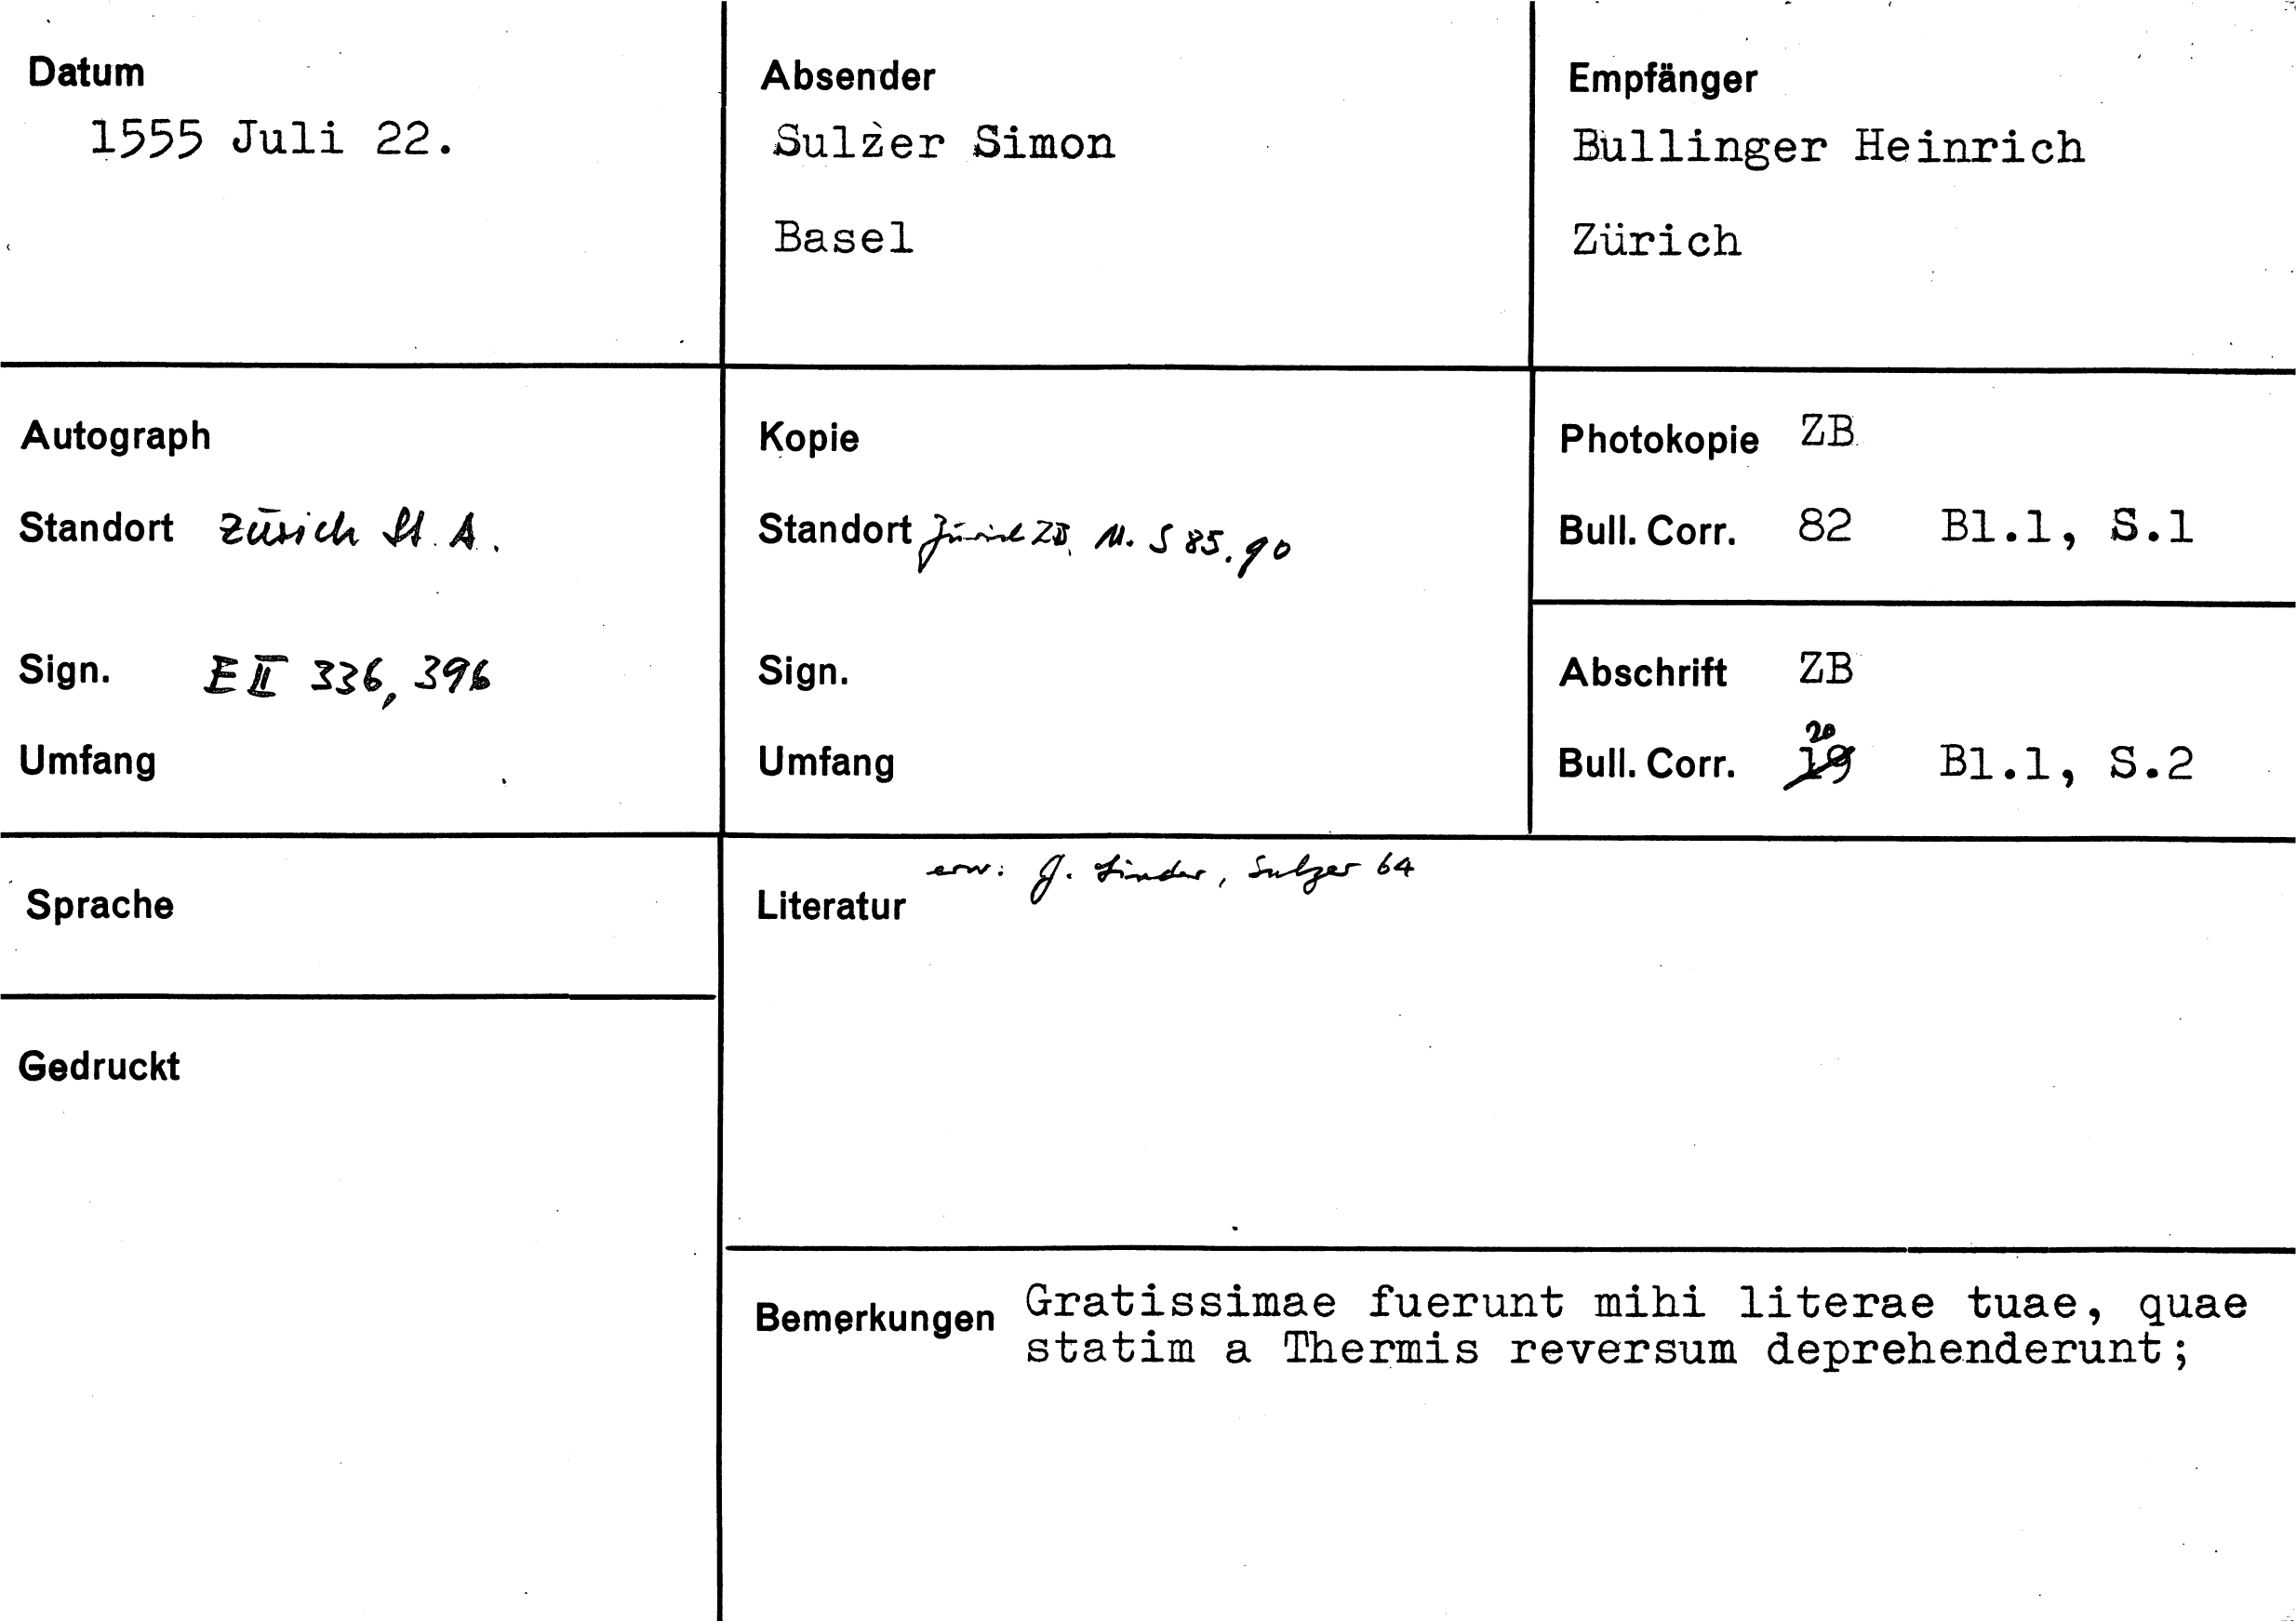 Datum
1555 Juli 22.
Absender
Sulzer Simon
Basel
Empfänger
Bullinger Heinrich
Zürich
Autograph
Standort Zürich St. A.
Sign. E II 336, 396
Umfang
Kopie
Standort Zürich ZB, M. S 85.90
Sign.
Umfang
Photokopie ZB
Bull. Corr. 82 Bl.1, S.1
Abschrift ZB
20
Bull. Corr. 19 Bl.1, S.2
Sprache
Gedruckt
erw: G. Linder, Sulzer 64
Literatur
Bemerkungen Gratissimae fuerunt mihi literae tuae, quae
statim a Thermis reversum deprehenderunt;